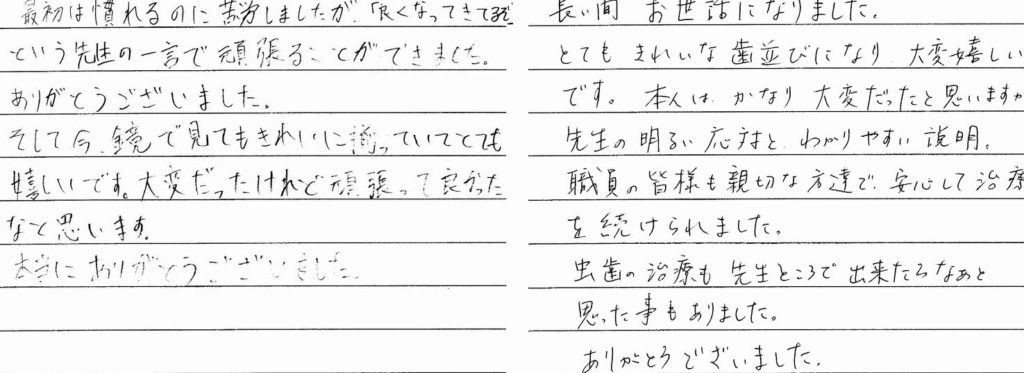 最初は慣れるのに苦労しましたが、「良くなってきてるぞ
という先生の一言で頑張ることができました。
ありがとうございました。
そして今、鏡で見てもきれいに揃っていてとても
嬉しいです。大変だったけれど頑張って良かった
なと思います。
本当にありがとうございました。
長い間 お世話になりました。
とても きれいな歯並びになり 大変嬉しい
です。本人は かなり 大変だったと思いますが
先生の明るい応対と わかりやすい説明、
職員の皆様も親切な方達で、安心して治療
を続けられました。
虫歯の治療も先生ところで出来たらなぁと
思った事もありました。
ありがとうございました。